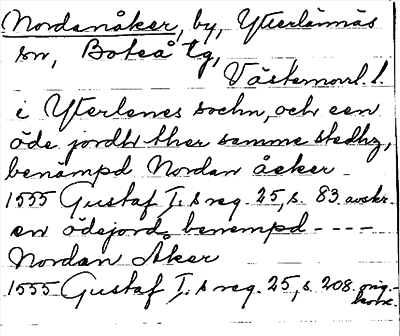 Nordanåker, by, Ytterlännäs
sn, Boteå tg,
Västernorrl. l.
i Ytterlenes sochn, och een
öde jordh ther samme stedhz,
benämpd Nordan åcker
1555 Gustaf I:s reg. 25, s. 83. avskr.
en ödesjord benempd - - - -
Nordan Åker
1555 Gustaf I:s reg. 25, s. 208. orig.-
konc.